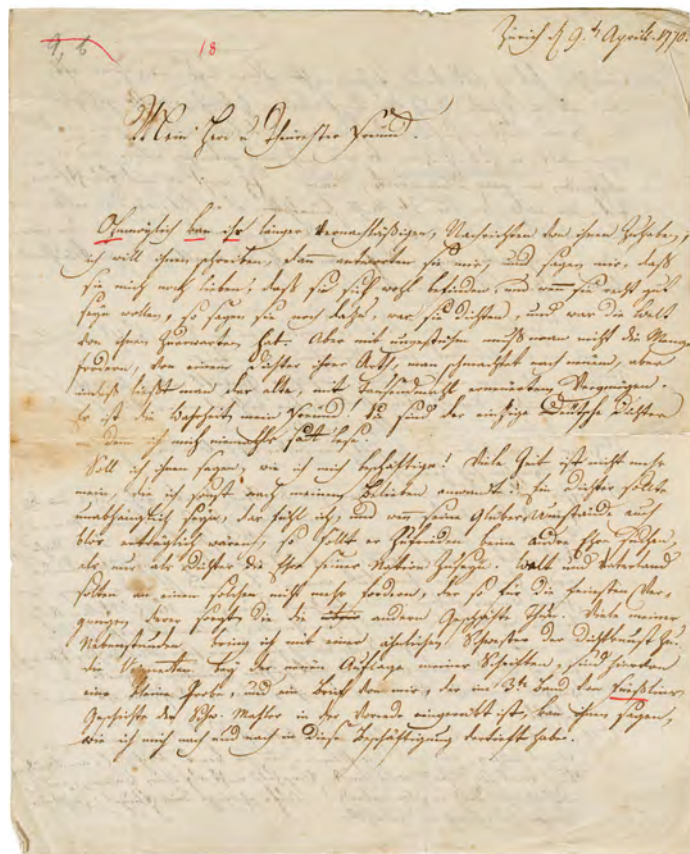 9, 6
18
Zürich d 9.t Aprill. 1770.
Mein Herr u Theürester Freünd.
Ohnmöglich kan ichs länger vernachläßigen, Nachrichten von ihnen Zuhaben,
ich will ihnen schreiben, dann antworten sie mir, und sagen mir, daß
sie mich noch lieben, daß sie sich wohl befinden, und wenn sie recht gut
seyn wollen, so sagen sie noch dazu, was sie dichten, und was die Welt
von ihnen Zuerwarten hat. Aber mit ungestühm muß man nicht die Menge
fordern, von einem Dichter ihrer Arth, man schmachtet nach neüem, aber
indeß ließt man das alte, mit tausendmahl erneüertem Vergnügen.
Es ist die Wahrheit, mein Freünd! Sie sind der einzige Deütsche Dichter
in dem ich mich niemahls satt lese.
Soll ich ihnen sagen, wie ich mich beschäftige! Viele Zeit ist nicht mehr
mein, die ich sonst nach meinem Belieben anwandte. Ein Dichter sollte
unabhängig seyn, das fühl ich, und wenn seine Glüks Umstände auch
blos erträglich wären, so sollt er Zufrieden keine andre Ehre suchen,
als nur als Dichter die Ehre seiner Nation Zuseyn. Welt und Vaterland
solten an einen solchen nicht mehr fordern, der so für die feinsten Ver-
gnügen derer sorgt, die die andern Geschäfte thun. Viele meiner
Nebenstunden bring ich mit einer ähnlichen Schwester der Dichtkunst Zu.
die Vignetten bey der neüen Auflage meiner Schriften, sind hievon
eine kleine Probe, und ein Brief von mir, der im 3.t Band von Füeßlins
Geschichte der Schw. Mahler in der Vorrede eingerükt ist, kan ihnen sagen,
wie ich mich nach und nach in diese Beschäftigung verliebt habe.